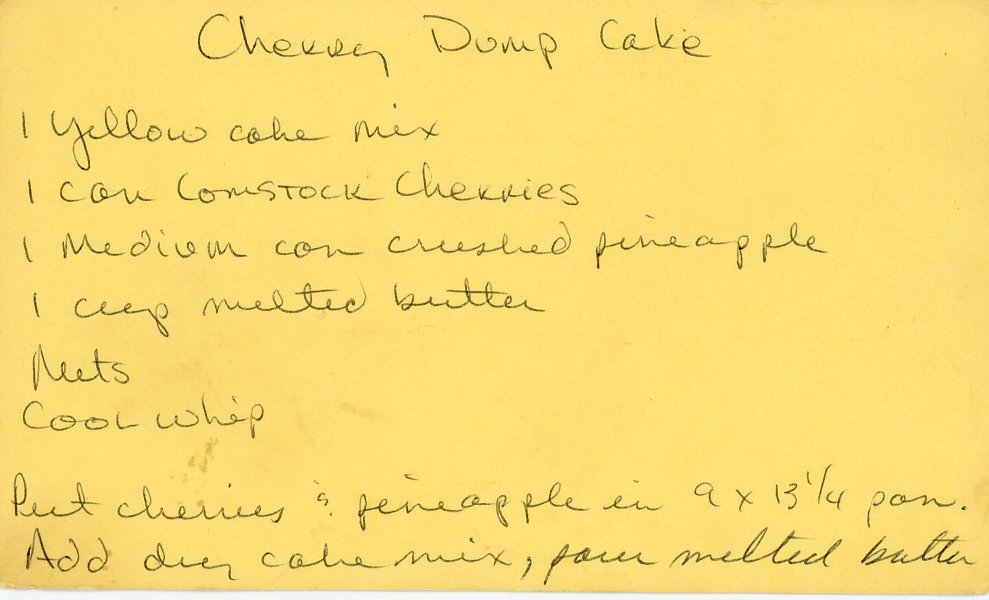 Cherry Dump Cake
1 Yellow cake mix
1 can Comstock Cherries
1 Medium can crushed pineapple
1 cup melted butter
Nuts
Cool whip
Put cherries & pineapple in 9 x 13 1/4 pan.
Add dry cake mix, pour melted butter